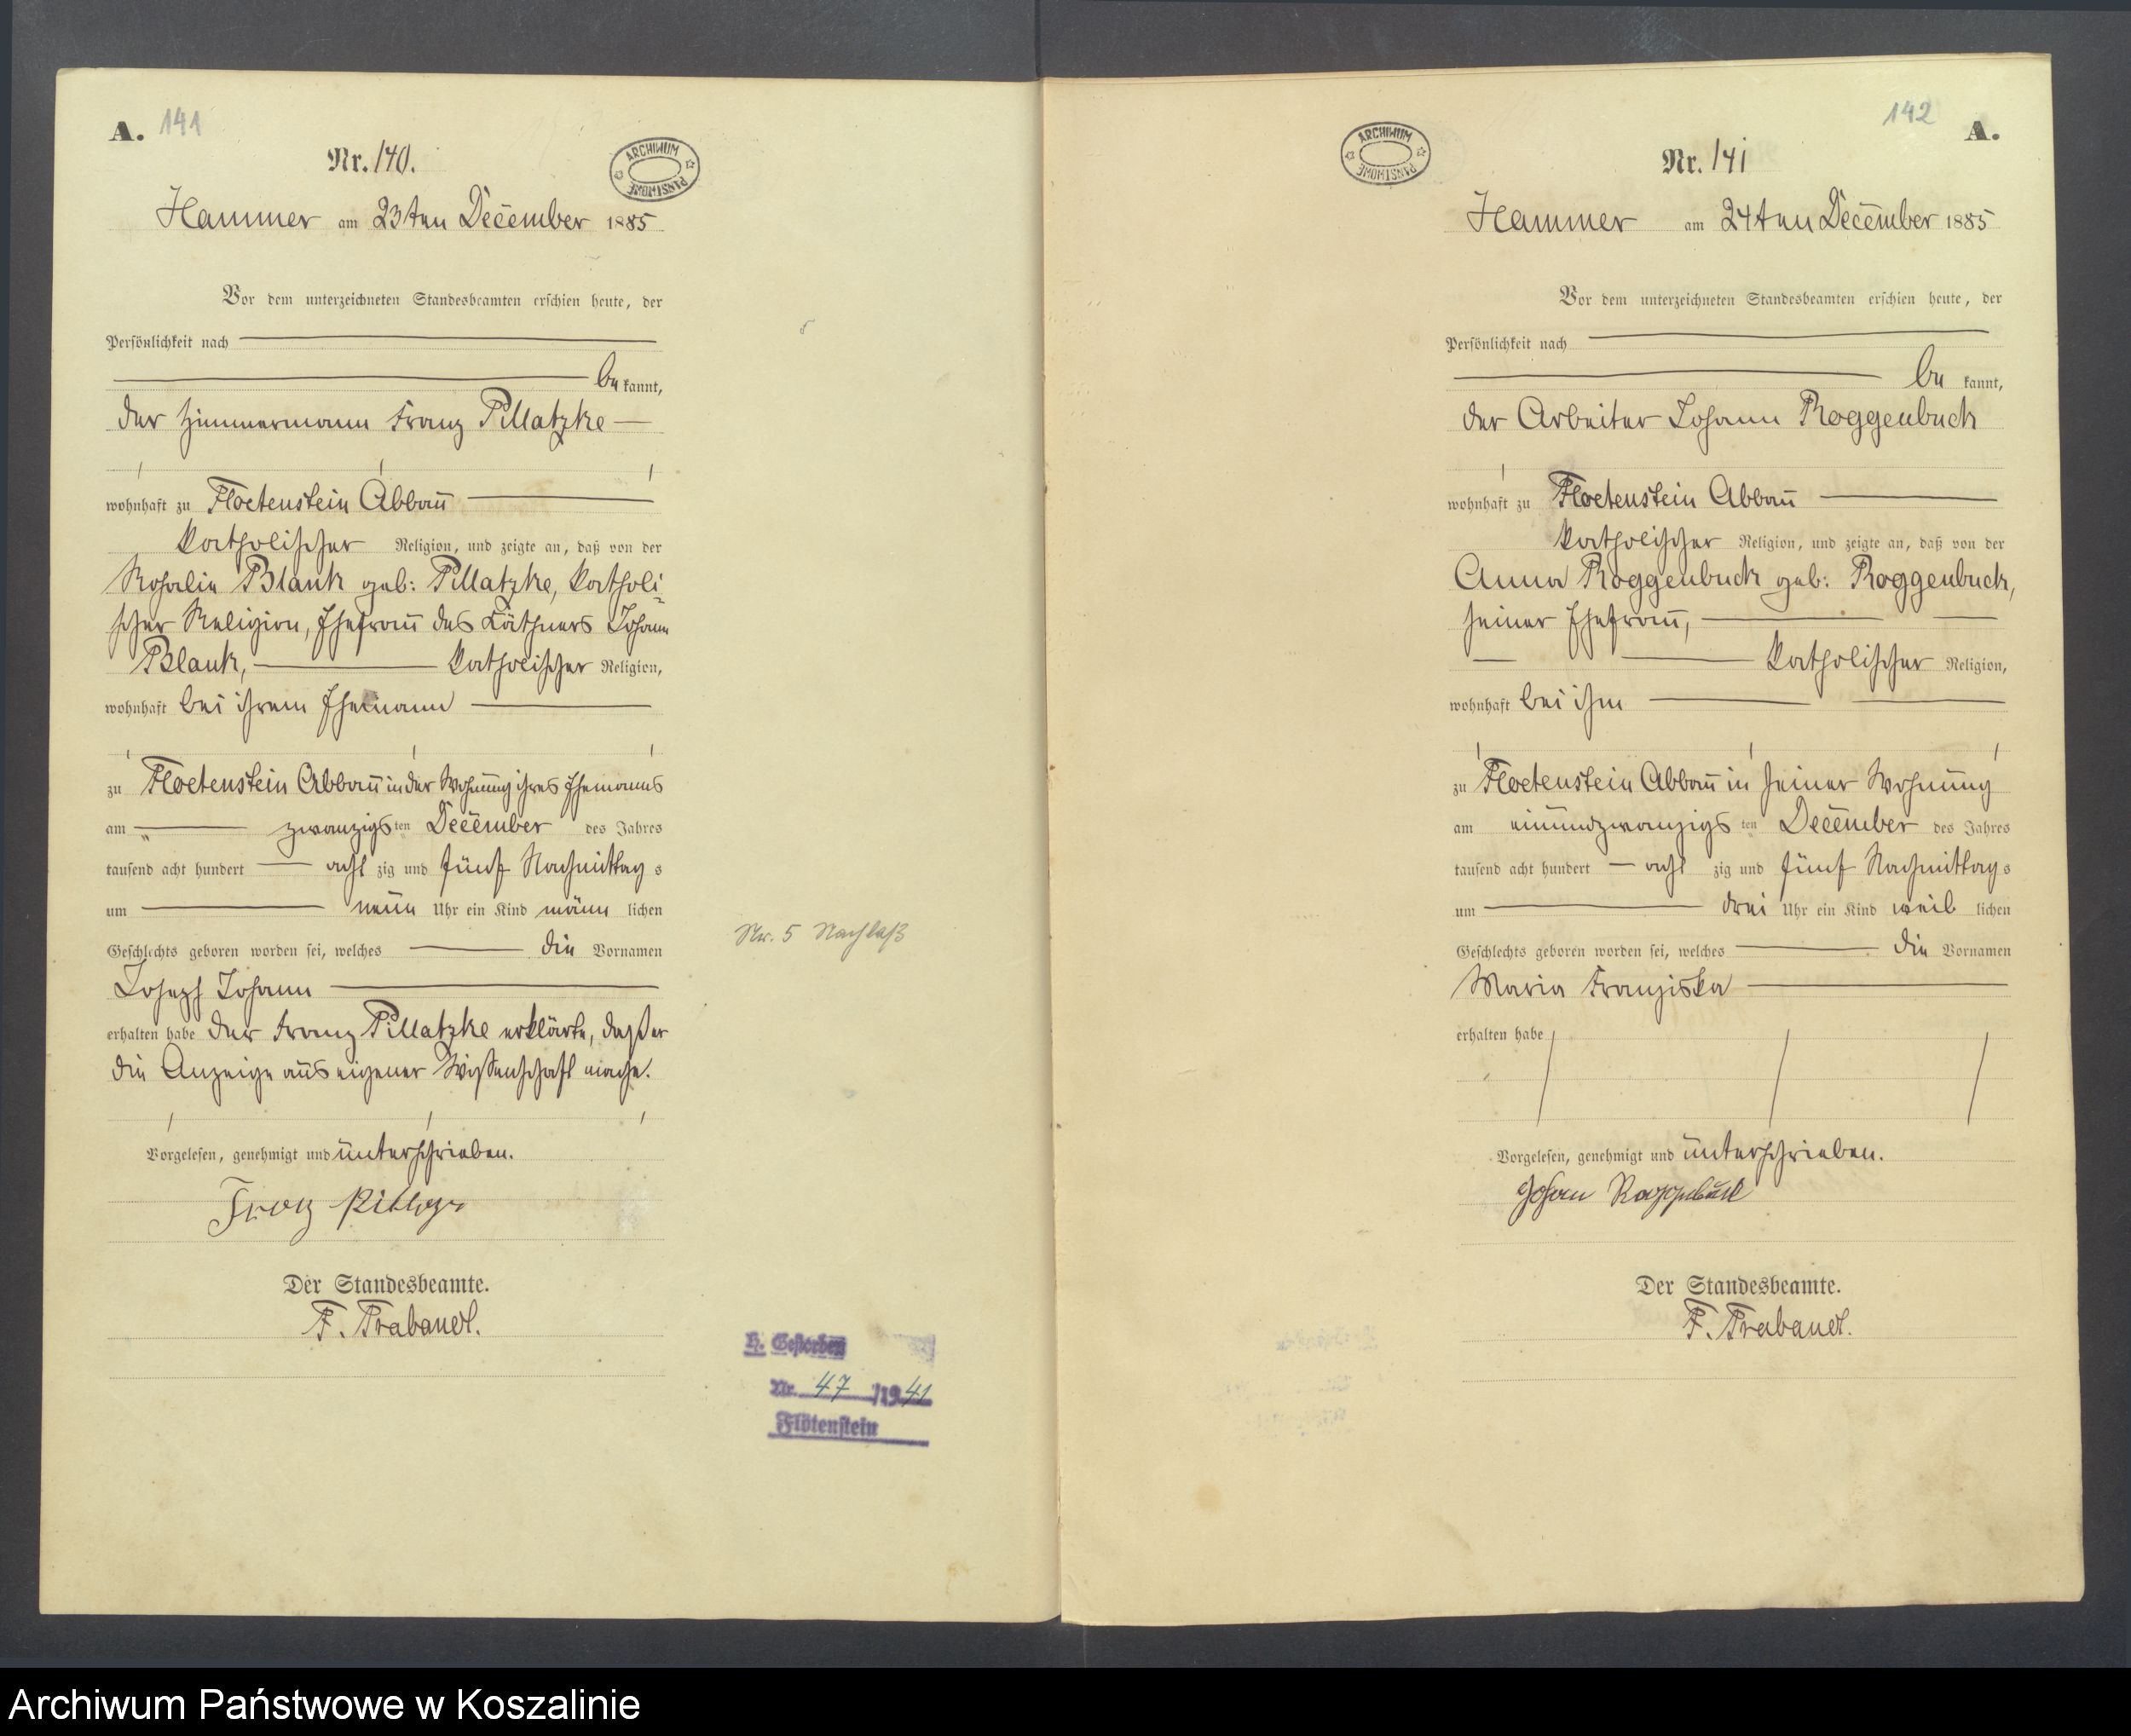 A. 141
Nr. 140.
ARCHIWUM PAŃSTWOWE
Hammer am 23ten December 1885
Vor dem unterzeichneten Standesbeamten erschien heute, der
Persönlichkeit nach
be kannt,
der Zimmermann Franz Pillatzke
wohnhaft zu Floetenstein Abbau
katholischer Religion, und zeigte an, daß von der
Rosalie Blank geb: Pillatzke, katholi-
scher Religion, Ehefrau des Käthners Johann
Blank, katholischer Religion,
wohnhaft bei ihrem Ehemann
zu Floetenstein Abbau in der Wohnung ihres Ehemanns
am zwanzigs ten December des Jahres
tausend acht hundert acht zig und fünf Nachmittag s
um neun Uhr ein Kind männ lichen
Geschlechts geboren worden sei, welches die Vornamen
Joseph Johann
erhalten habe der Franz Pillatzke erklärte, daß er
die Anzeige aus eigener Wissenschaft mache.
Vorgelesen, genehmigt und unterschrieben.
Franz
Der Standesbeamte.
F. Trabandt.
Nr. 5 Nachlaß
H. Gestorben
Nr. 47 /1941
Flötenstein
142 A.
Nr. 141
ARCHIWUM PAŃSTWOWE
Hammer am 24ten December 1885
Vor dem unterzeichneten Standesbeamten erschien heute, der
Persönlichkeit nach
be kannt,
der Arbeiter Johann Roggenbuck
wohnhaft zu Floetenstein Abbau
katholischer Religion, und zeigte an, daß von der
Anna Roggenbuck geb: Roggenbuck,
seiner Ehefrau,
katholischer Religion,
wohnhaft bei ihm
zu Floetenstein Abbau in seiner Wohnung
am einundzwanzigs ten December des Jahres
tausend acht hundert acht zig und fünf Nachmittag s
um drei Uhr ein Kind weib lichen
Geschlechts geboren worden sei, welches die Vornamen
Maria Franziska
erhalten habe
Vorgelesen, genehmigt und unterschrieben.
Johan Roggenbuck
Der Standesbeamte.
F. Trabandt.
Archiwum Państwowe w Koszalinie